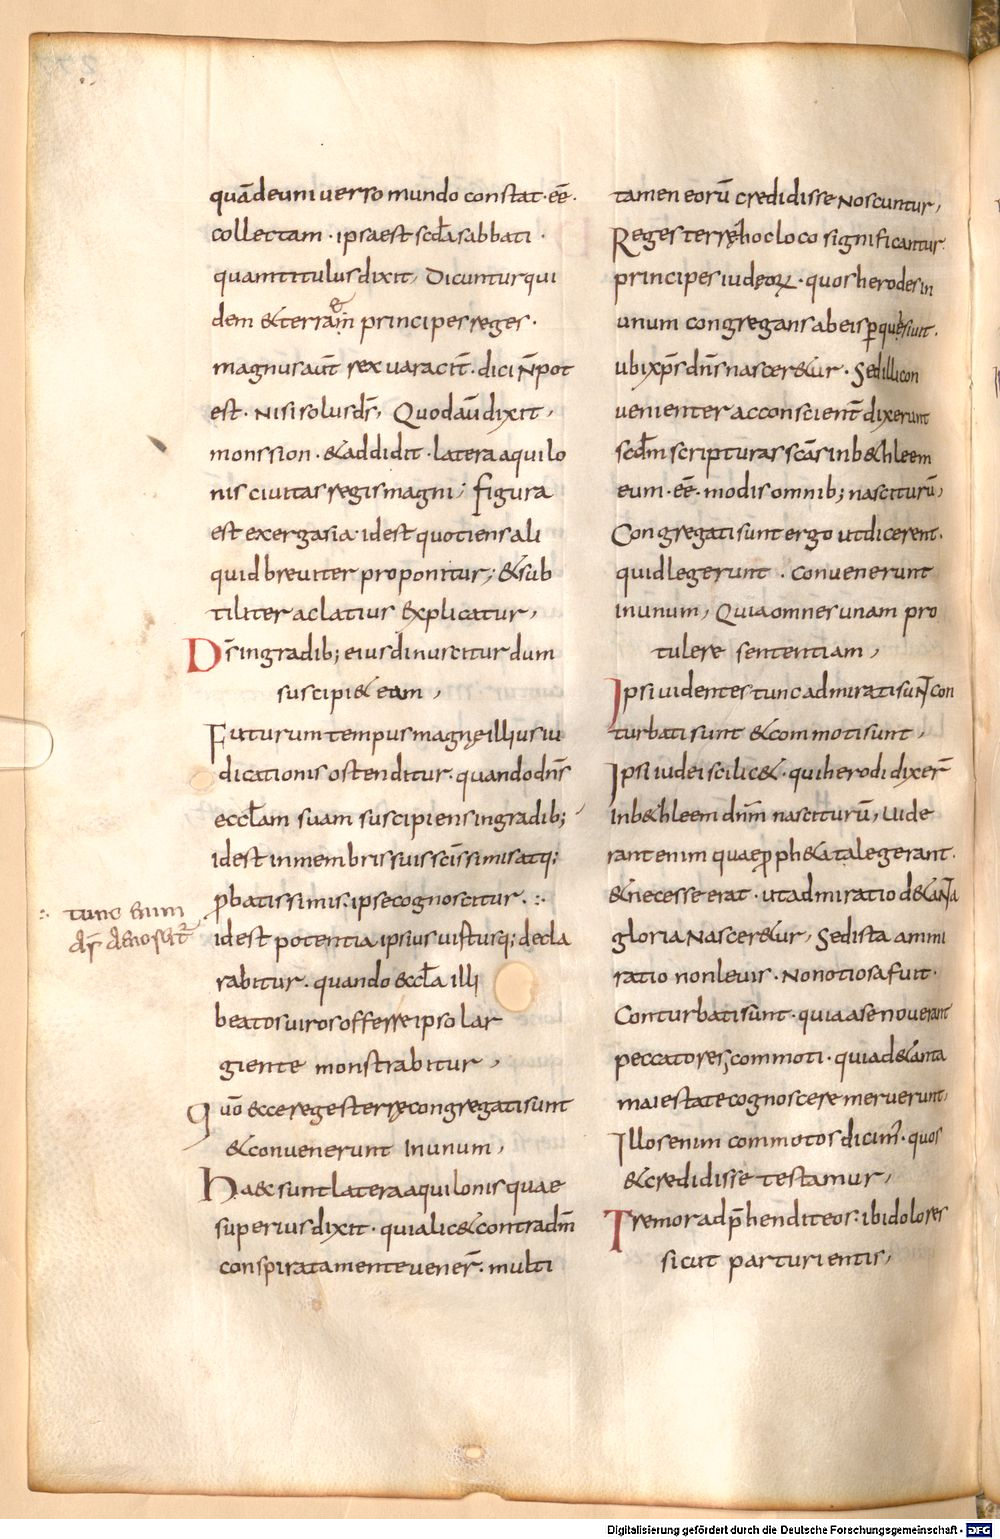 quādeuniuerso mundo constat · eē ·
collectam · ipsaest scd̄asabbati ·
quamtitulusdixit, Dicunturqui
dem &terram principesreges ·
magnusaūt rex uaraciт̄ · dici n̄ pot
est · Nisisolusd̄s, Quodaūdixit,
monssion · &addidit · lateraaquilo
nisciuitasregismagni; figura
est exergasia · idest quotiensali
quid breuiter proponitur; &sub
tiliter aclatius &plicatur,
D̄singradib; eiusdinusciturdum
suscipi&eam,
Futurumtempusmagnęilliusiu
dicationis ostenditur · quandodn̄s
eccl̄am suam suscipiensingradib;
idest inmembrissuisscīssimisatq;
ꝓbatissimis: ipsecognoscitur · :·
idest potentia ipsius uirtusq; decla
rabitur · quando &ccl̄a illi
beatosuirosofferreipso lar
giente monstrabitur,
:· tunc enim
Quō &cceregesterręcongregatisunt
&conuenerunt inunum,
Haecsuntlateraaquilonisquae
superiusdixit · quialic&contradn̄m
conspiratamenteuener̄ · multi
tamen eorū credidisse Noscuntur,
Regesterręhocloco significantur
principesiudęoꝝ · quosherodesin
unum congregansabeisꝑquesiuit ·
ubixp̄sdn̄snascer&ur · Sedillicon
uenienteracconscient̄dixerunt
scd̄mscripturasscāsinb&hleem
eum · eē · modisomnib; nasciturū,
Congregatisuntergo utdicerent ·
quidlegerunt · Conuenerunt
inunum, Quiaomnesunam pro
tulere sententiam,
Ipsiuidentestuncadmiratisuntcon
turbatisunt &commotisunt,
Ipsiiudeiscilic& · quiherodidixer̄
Inb&hleem dn̄m nasciturū, Uide
rantenim quaeꝓph&atalegerant ·
&necesseerat · utadmiratiod&anta
gloriaNascer&ur, Sedista ammi
ratio nonleuis · Nonotiosafuit ·
Conturbatisunt · quiaasenouerant
peccatores; commoti · quiad&anta
maiestatecognosceremeruerunt,
Illosenim commotosdicim̄ · quos
&credidisse testamur,
Tremoradp̄henditeos: ibidolores
sicut parturientis,
Digitalisierung gefördert durch die Deutsche Forschungsgemeinschaft - DFG